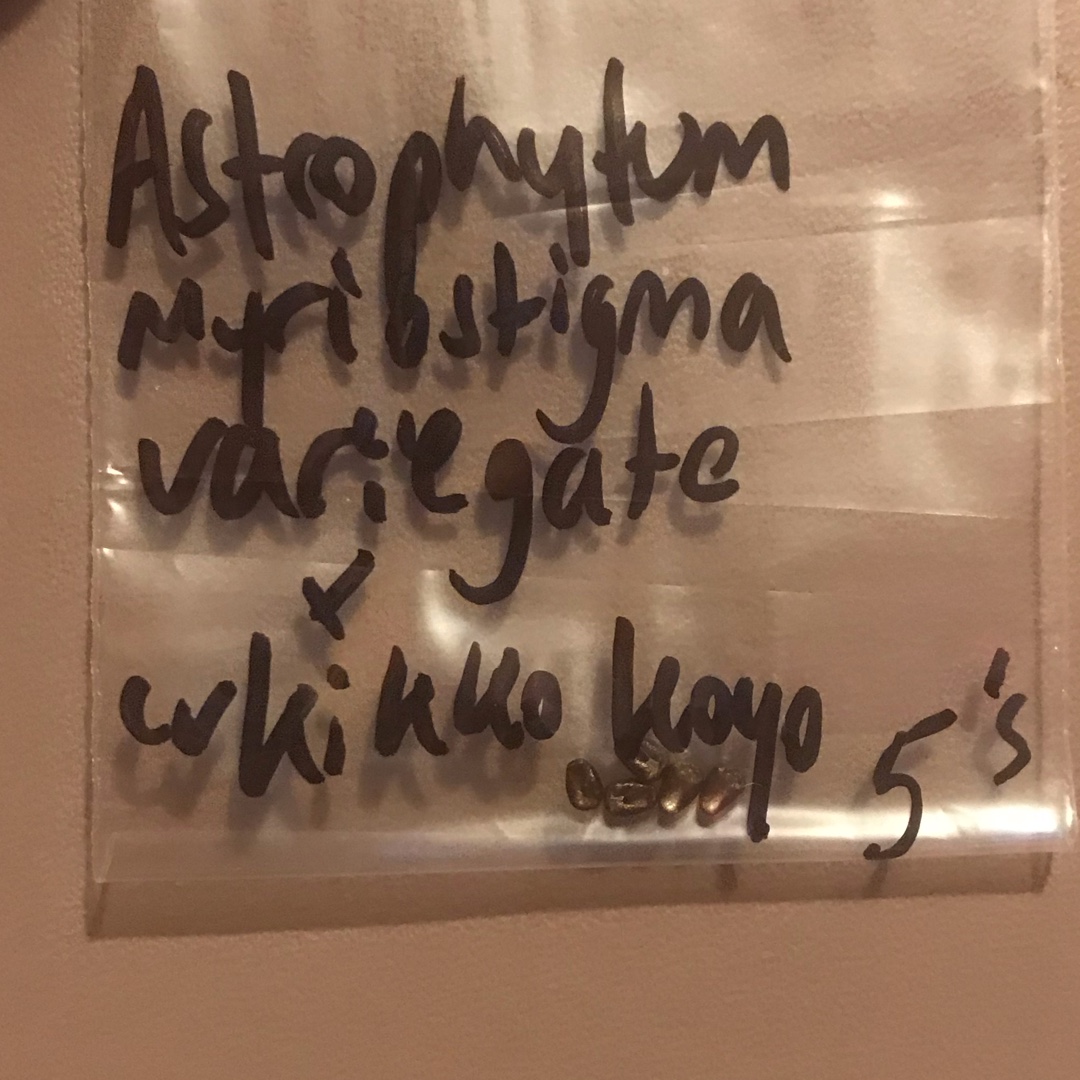 Astrophytum
Myribstigma
variegate
x
cv kikko koyo 5's